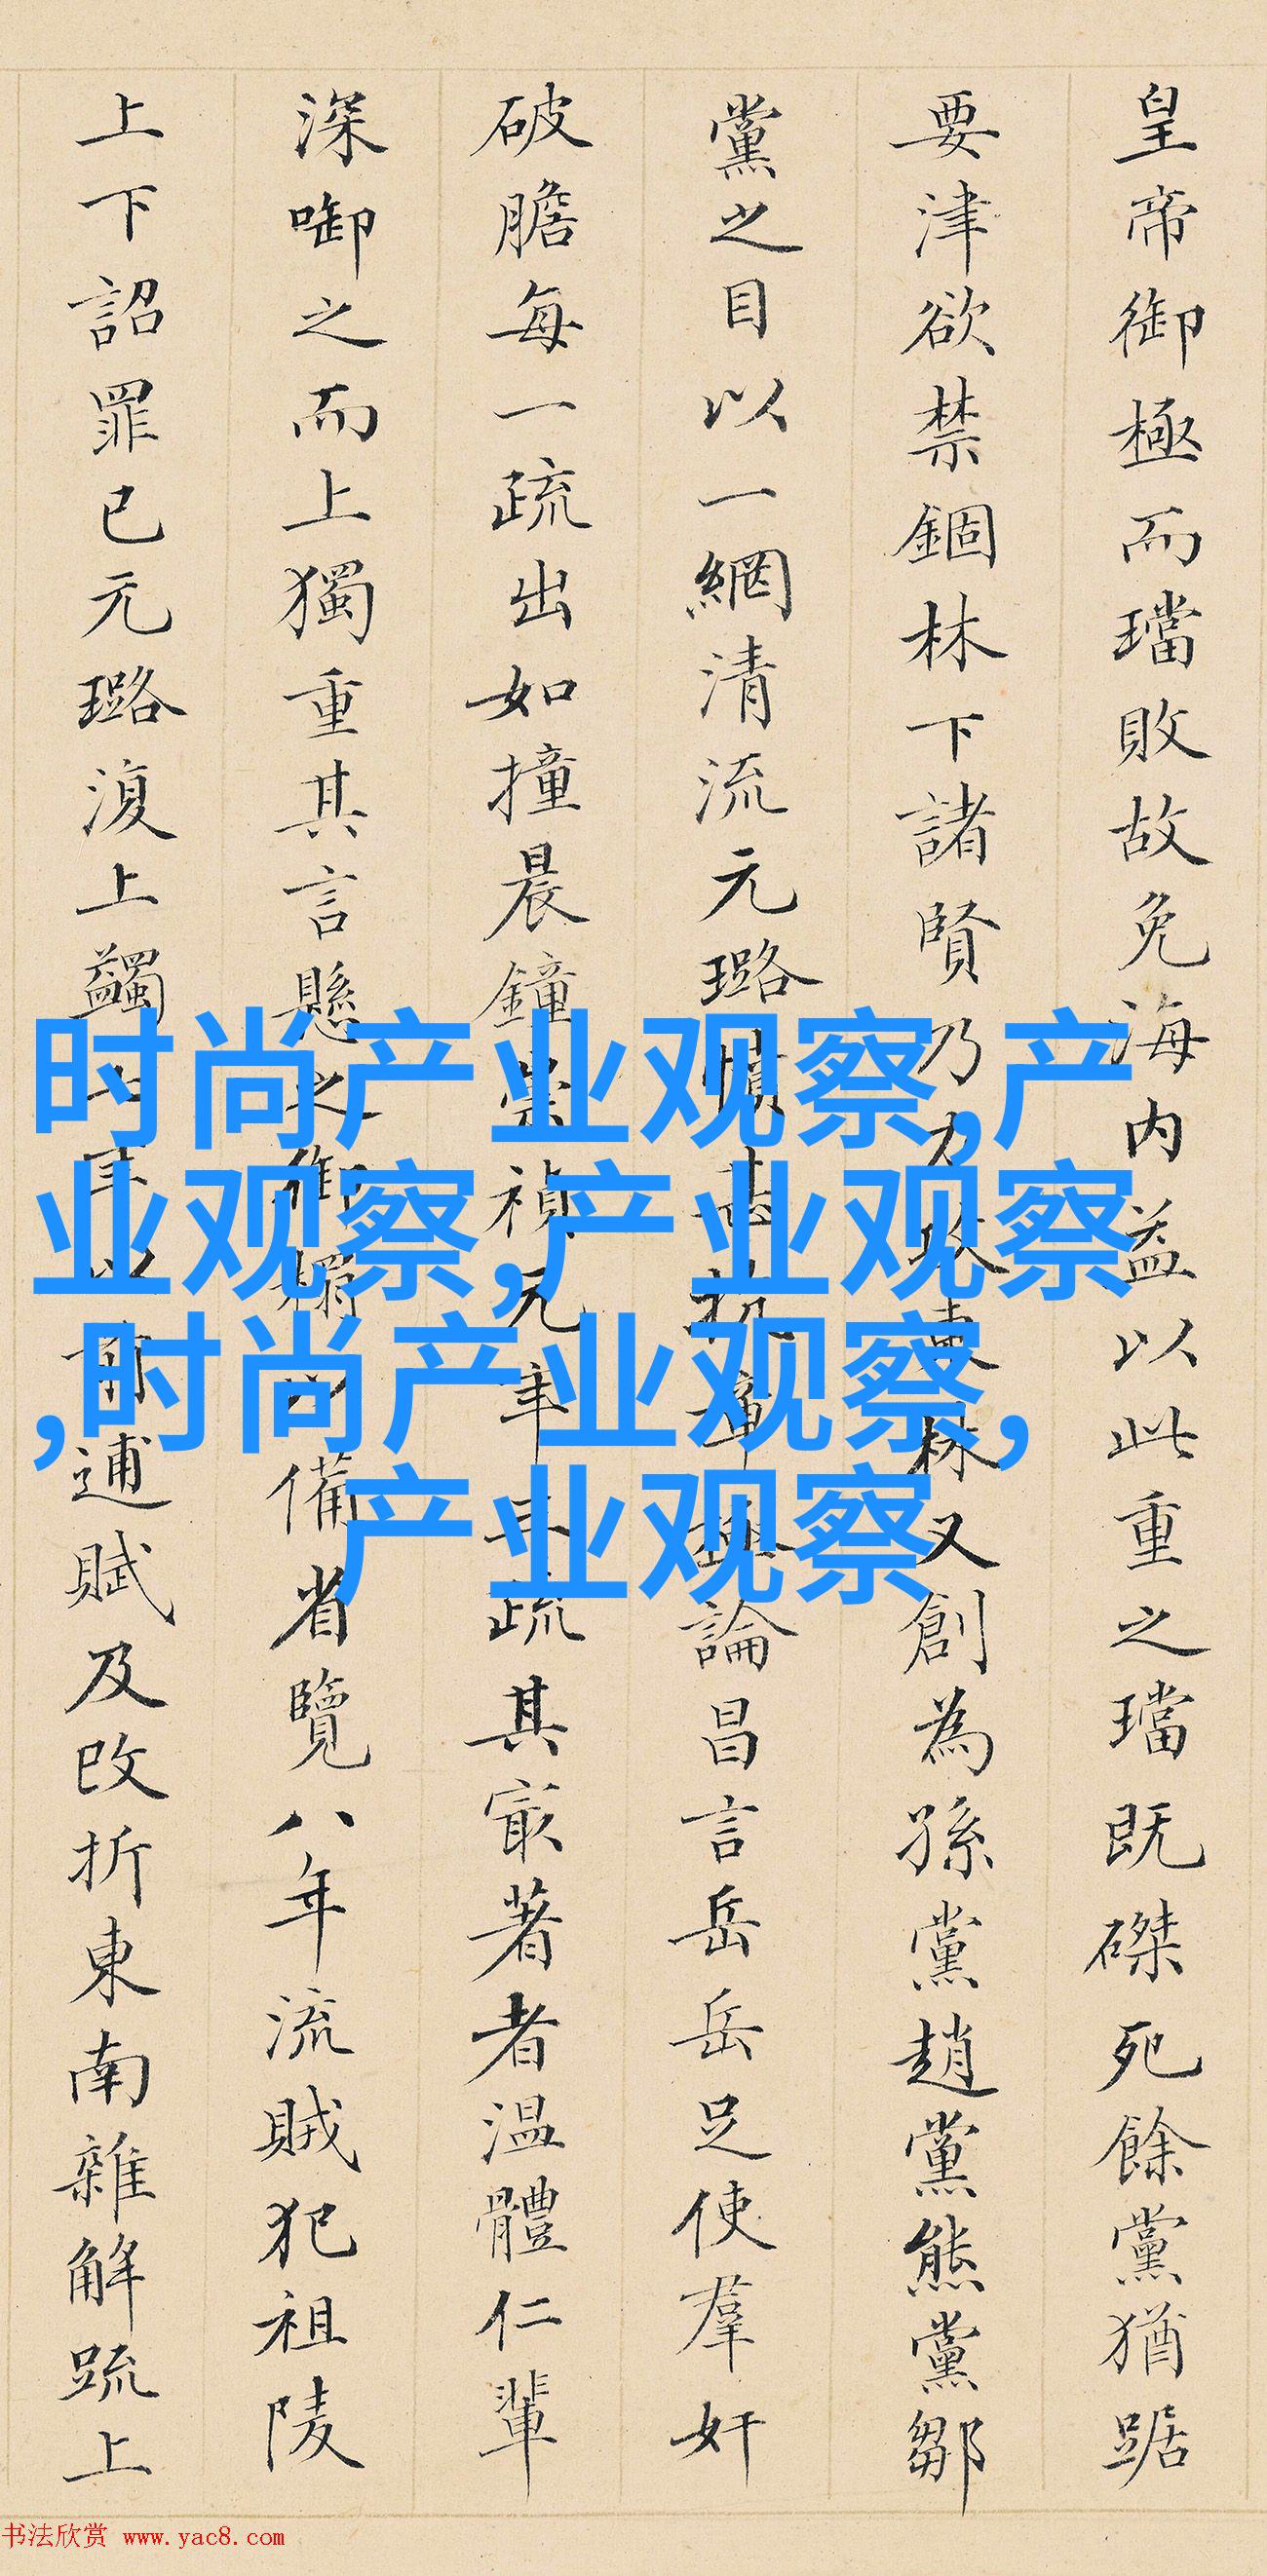 皇帝御極而璫敗故免海内益以此重之璫既磔死餘黨猶踞
要津欲禁錮林下諸賢乃力又創為孫黨趙黨熊黨鄒
黨之目以一網清流元璐論昌言岳岳足使羣奸
破膽每一疏出如撞晨鐘崇禎元年疏其最著者温體仁輩
深啣之而上獨重其言懸之御備省覽八年流賊犯祖陵
上下詔罪已元璐復上蠲逋賦及改折東南雜解疏上
时尚产业观察,产
业观察,产业观察
,时尚产业观察,
产业观察
书法欣赏 www.yac8.com